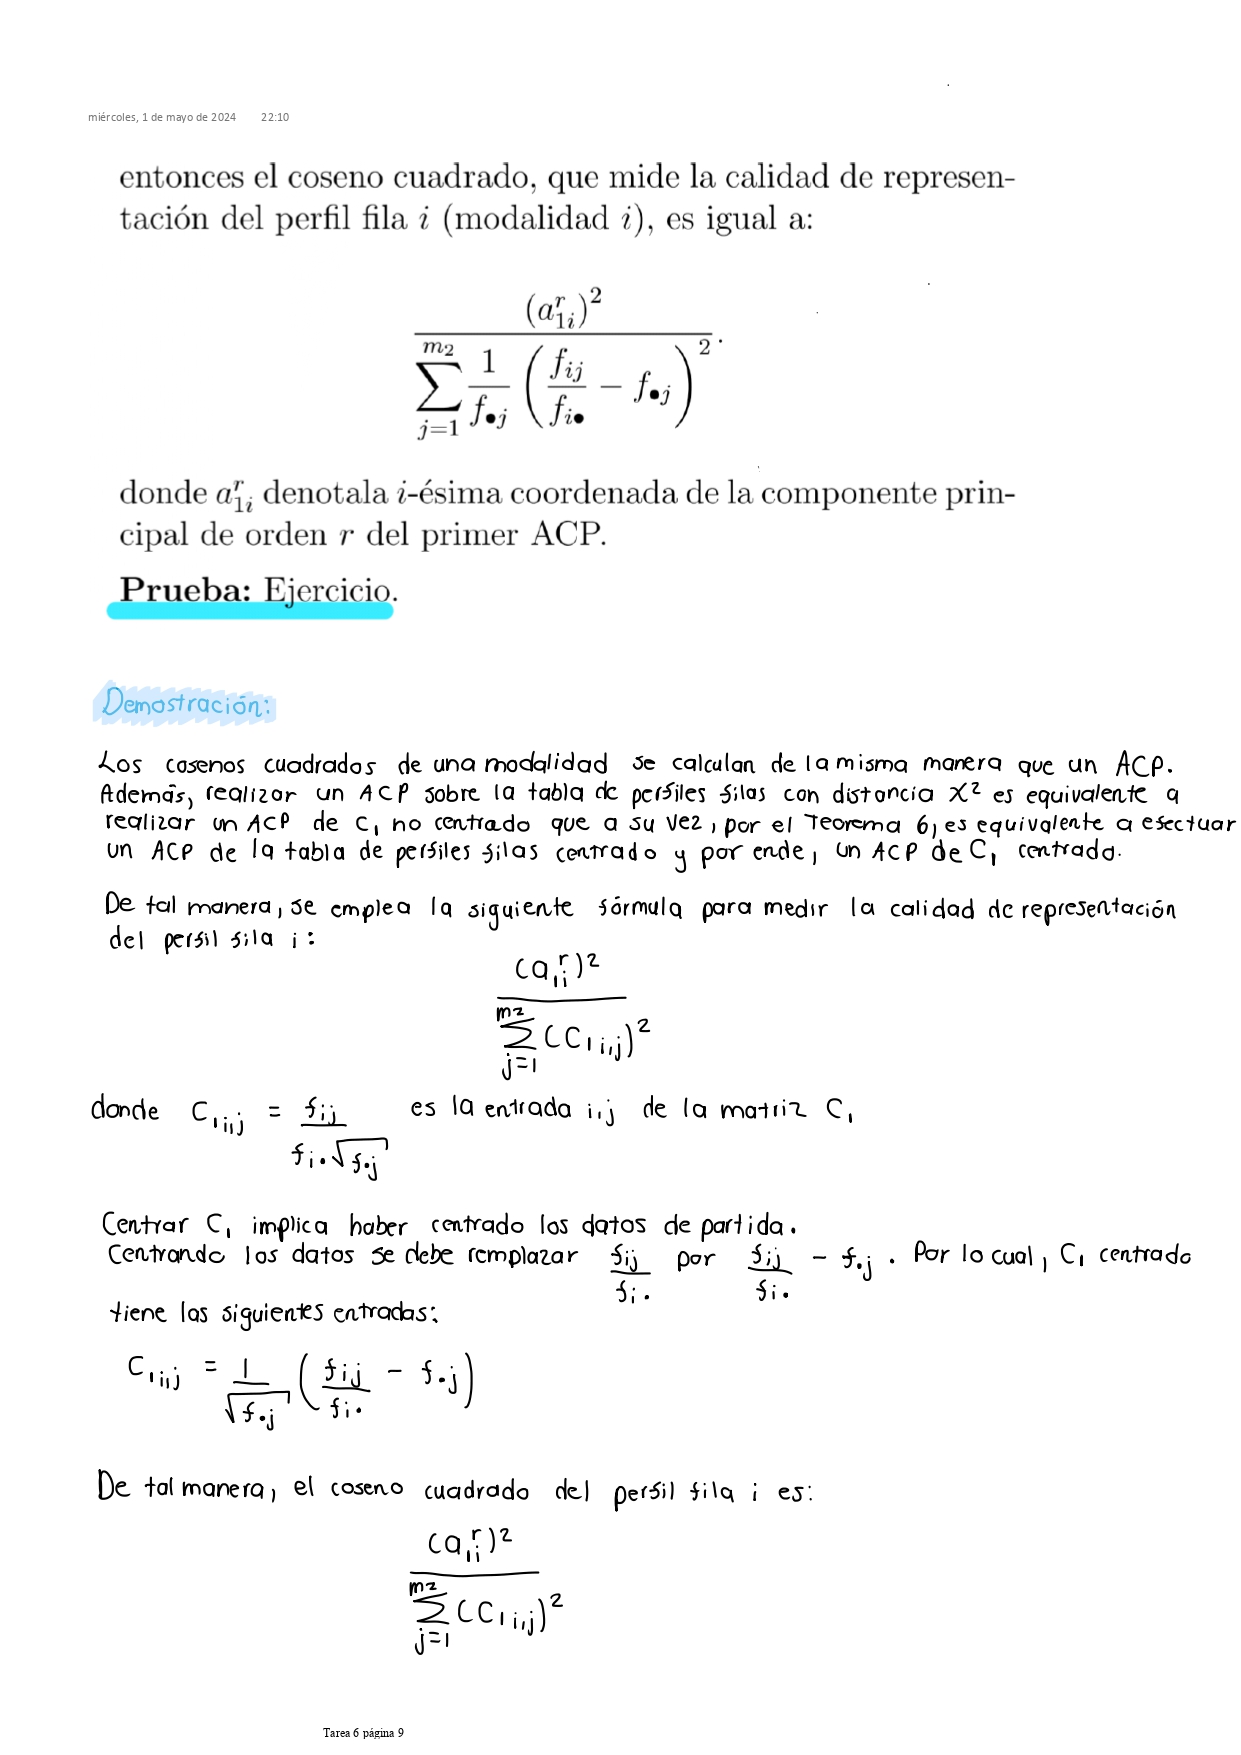 miércoles, 1 de mayo de 2024 22:10
entonces el coseno cuadrado, que mide la calidad de represen-
tación del perfil fila i (modalidad i), es igual a:
\frac{(a_{1i}^r)^2}{\sum_{j=1}^{m_2} \frac{1}{f_{•j}} \left( \frac{f_{ij}}{f_{i•}} - f_{•j} \right)^2}.
donde a_{1i}^r denotala i-ésima coordenada de la componente prin-
cipal de orden r del primer ACP.
Prueba: Ejercicio.
Demostración:
Los cosenos cuadrados de una modalidad se calculan de la misma manera que un ACP.
Además, realizar un ACP sobre la tabla de perfiles filas con distancia X² es equivalente a
realizar un ACP de C_1 no centrado que a su vez, por el Teorema 6, es equivalente a efectuar
un ACP de la tabla de perfiles filas centrado y por ende, un ACP de C_1 centrado.
De tal manera, se emplea la siguiente fórmula para medir la calidad de representación
del perfil fila i:
\frac{(a_{1i}^r)^2}{\sum_{j=1}^{m_2} (C_{1 i,j})^2}
donde C_{1 i,j} = \frac{f_{ij}}{f_{i•} \sqrt{f_{•j}}} es la entrada i,j de la matriz C_1
Centrar C_1 implica haber centrado los datos de partida.
Centrando los datos se debe remplazar \frac{f_{ij}}{f_{i•}} por \frac{f_{ij}}{f_{i•}} - f_{•j}. Por lo cual, C_1 centrado
tiene las siguientes entradas:
C_{1 i,j} = \frac{1}{\sqrt{f_{•j}}} \left( \frac{f_{ij}}{f_{i•}} - f_{•j} \right)
De tal manera, el coseno cuadrado del perfil fila i es:
\frac{(a_{1i}^r)^2}{\sum_{j=1}^{m_2} (C_{1 i,j})^2}
Tarea 6 página 9